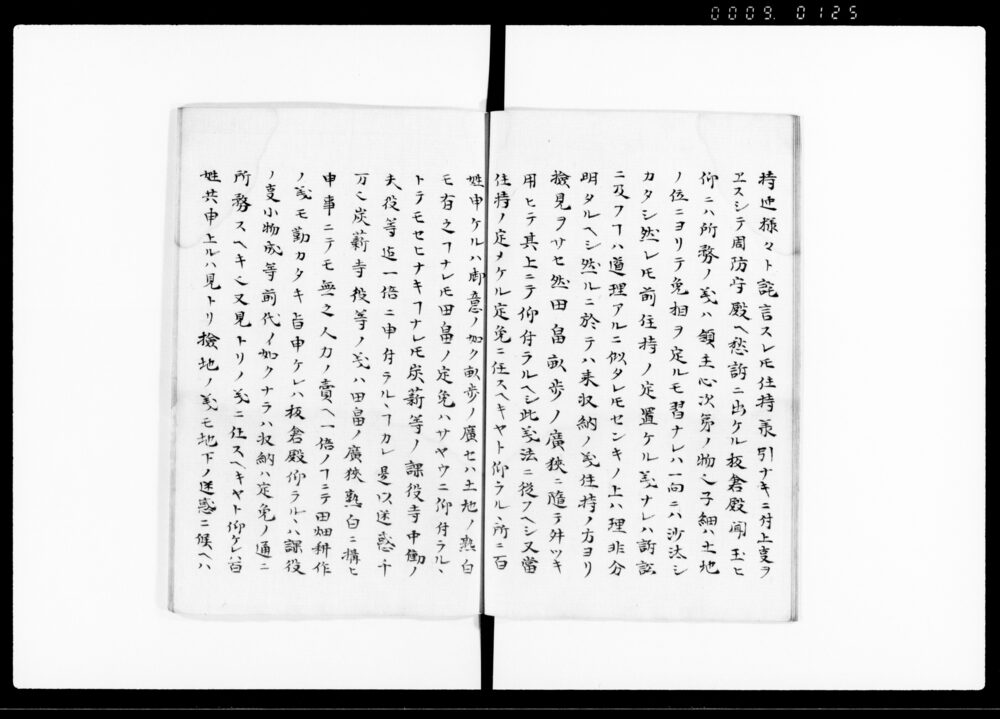 0009.0125
持迚様々ト詫言スレヒ住持承引ナキニ付上裁ヲ
ヱスシテ周防守殿ヘ愁訴ニ出ケル板倉殿聞玉ヒ
仰ニハ所務ノ義ハ領主心次第ノ物也子細ハ土地
ノ位ニヨリテ免相ヲ定ルモ習ナレハ一向ニハ沙汰シ
カタシ然レヒ前住持ノ定置ケル義ナレハ訴訟
ニ及フヿハ道理アルニ似タレヒセンキノ上ハ理非分
明タルヘシ然ルニ於テハ来収納ノ義住持ノ方ヨリ
撿見ヲサセ然田畠畝歩ノ廣狹ニ随テ舛ツキ
用ヒテ其上ニテ仰付ラルヘシ此義法ニ従フヘシ又當
住持ノ定メケル定免ニ任スヘキヤト仰ラルヽ所ニ百
姓申ケルハ御意ノ如ク畝歩ノ廣セハ土地ノ熟白
モ有之ヿナレヒ田畠ノ定免ハサヤウニ仰付ラルヽ
トテモセヒナキヿナレヒ炭薪等ノ課役寺中働ノ
夫役等迄一倍ニ申付ラルヽヿカレ是以迷惑千
万也炭薪寺役等ノ義ハ田畠ノ廣狹熟白ニ搆ヒ
申事ニテモ無之人力ノ費ヘ一倍ノヿニテ田畑耕作
ノ義モ勤カタキ旨申ケレハ板倉殿仰ラルヽハ課役
ノ夏小物成等前代ノ如クナラハ収納ハ定免ノ通ニ
所務スヘキ也又見トリノ義ニ任スヘキヤト仰ケレハ百
姓共申上ルハ見トリ撿地ノ義モ地下ノ迷惑ニ候ヘハ